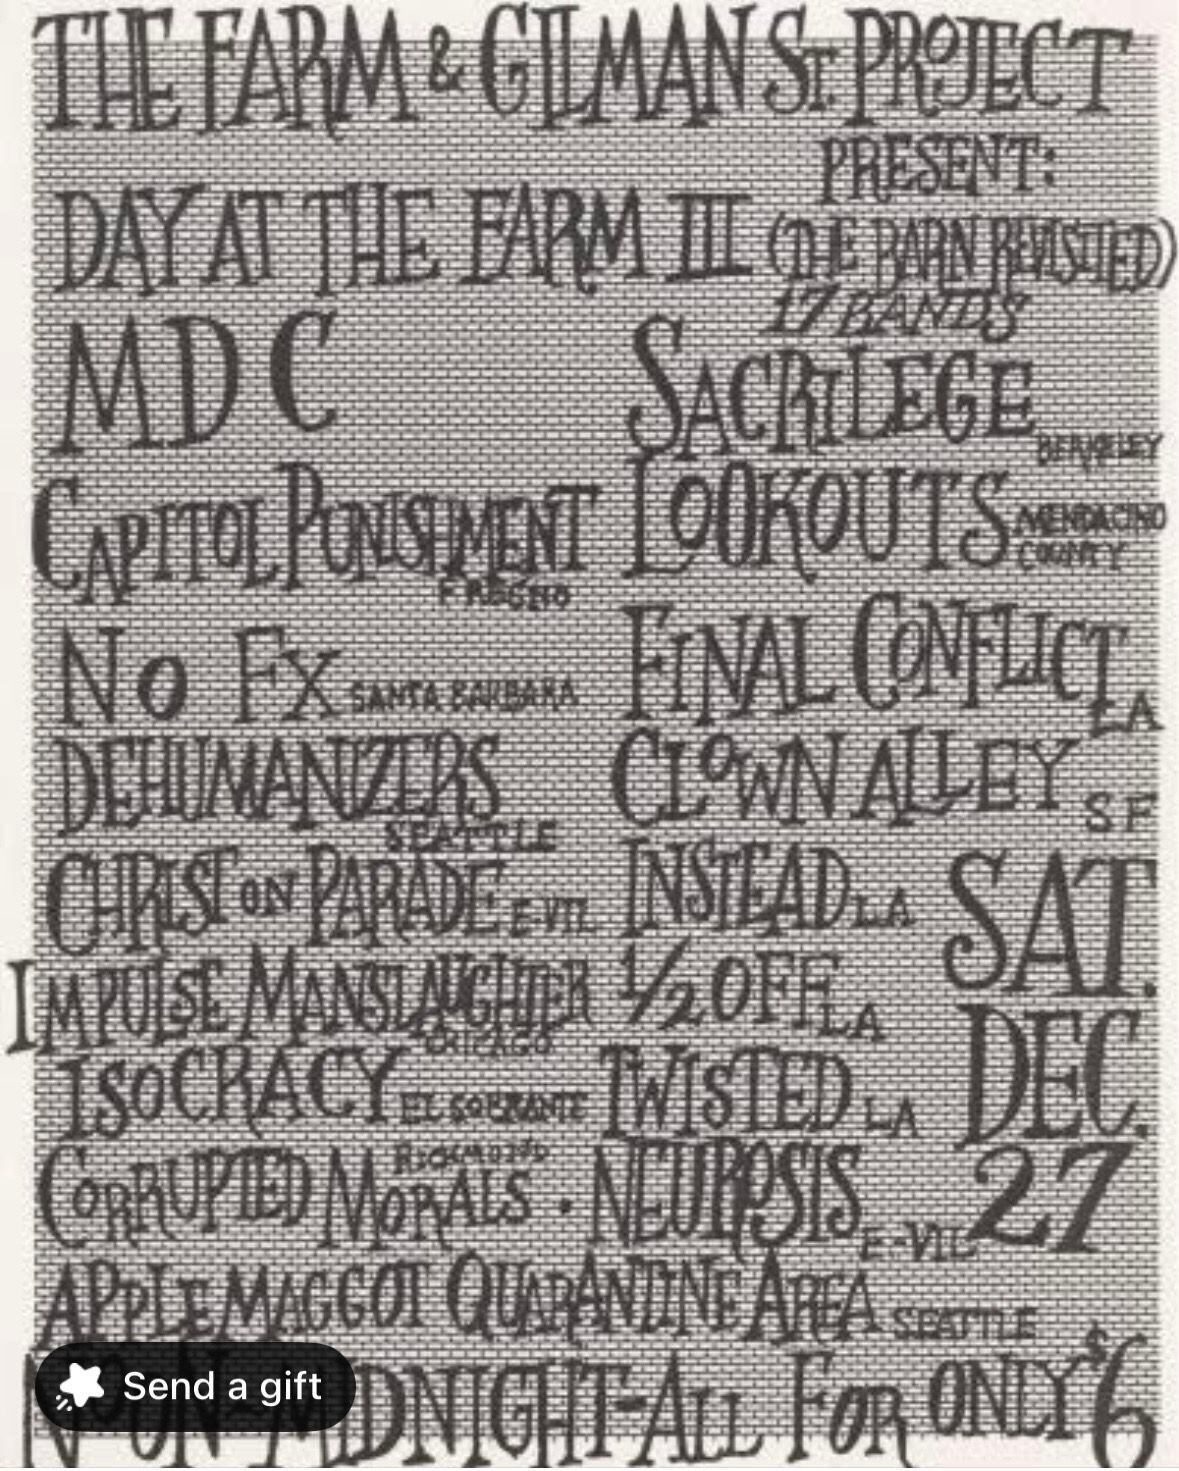 THE FARM & GILMAN ST. PROJECT
PRESENT:
DAY AT THE FARM III (THE BARN REVISITED)
17 BANDS
MDC
SACRILEGE BERKELEY
CAPITOL PUNISHMENT FRESNO
LOOKOUTS MENDACINO COUNTY
NO FX SANTA BARBARA
FINAL CONFLICT LA
DEHUMANIZERS SEATTLE
CLOWN ALLEY SF
CHRIST ON PARADE E-VIL
INSTEAD LA
IMPULSE MANSLAUGHTER CHICAGO
1/2 OFF LA
ISOCRACY EL SOBRANTE
TWISTED LA
CORRUPTED MORALS RICHMOND
NEUROSIS E-VIL
SAT.
DEC.
27
APPLE MAGGOT QUARANTINE AREA SEATTLE
MIDNIGHT-ALL FOR ONLY $6
Send a gift